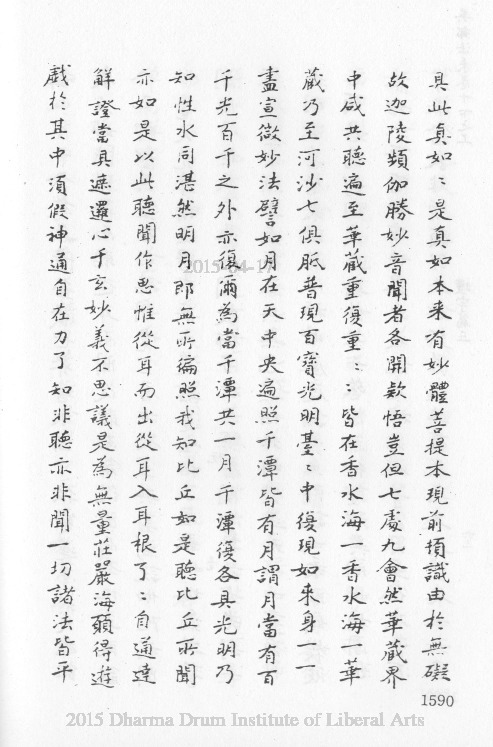 具此真如：是真如本来有妙體菩提本現前須識由扵無礙
故迦陵頻伽勝妙音聞者各開欵悟豈但七處九會然華藏界
中咸共聽遍至華藏重復重：：皆在香水海一香水海一華
藏乃至河沙七俱胝普現百寶光明臺：中復現如来身一一
盡宣微妙法譬如月在天中央遍照千潭皆有月謂月當有百
千光百千之外亦復爾為當千潭共一月千潭復各具光明乃
知性水同湛然明月即無所徧照我知比丘如是聽比丘所聞
亦如是以此聽聞作思惟從耳而出從耳入耳根了：自通達
解證當具遮邏心千玄妙義不思議是為無量莊嚴海願得遊
戲扵其中須假神通自在力了知非聽亦非聞一切諸法皆平
1590
2015-04-17
2015 Dharma Drum Institute of Liberal Arts